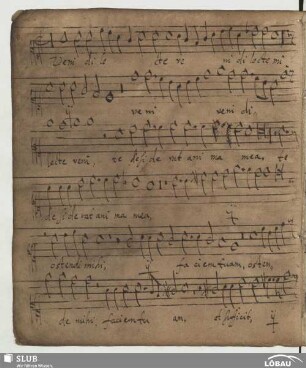 Veni di le cte ve ni di lecte mi
ij veni veni di
lecte veni, te desi de rat ani ma mea, te
de si de rat ani ma mea, ij
ostende mihi, ij fa ciem tuam, osten,
de mihi faciem tu am, et sufficit, ij
SLUB
Wir führen Wissen.
LÖBAU